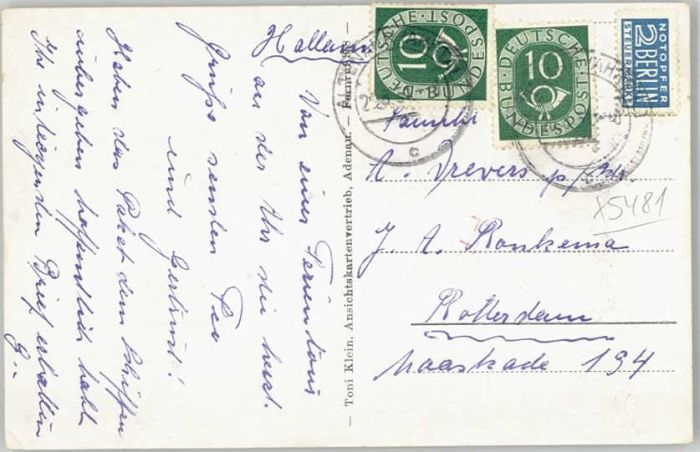 Holland
Von einer Ferientour
an der Ahr die herzl.
Grüße senden Leo
und Gertrud!
Haben das Paket dem Schiffer
übergeben hoffentlich habt
Ihr inliegenden Brief erhalten
G..
— Toni Klein, Ansichtskartenvertrieb, Adenau. — Fernruf
DEUTSCHE
BUNDESPOST
10
DEUTSCHE
BUNDESPOST
10
NOTOPFER
2 BERLIN
STEUERMARKE
c
Familie
A. Drevers p/Adr.
X5481
J. A. Ronkema
Rotterdam
Maaskade 134